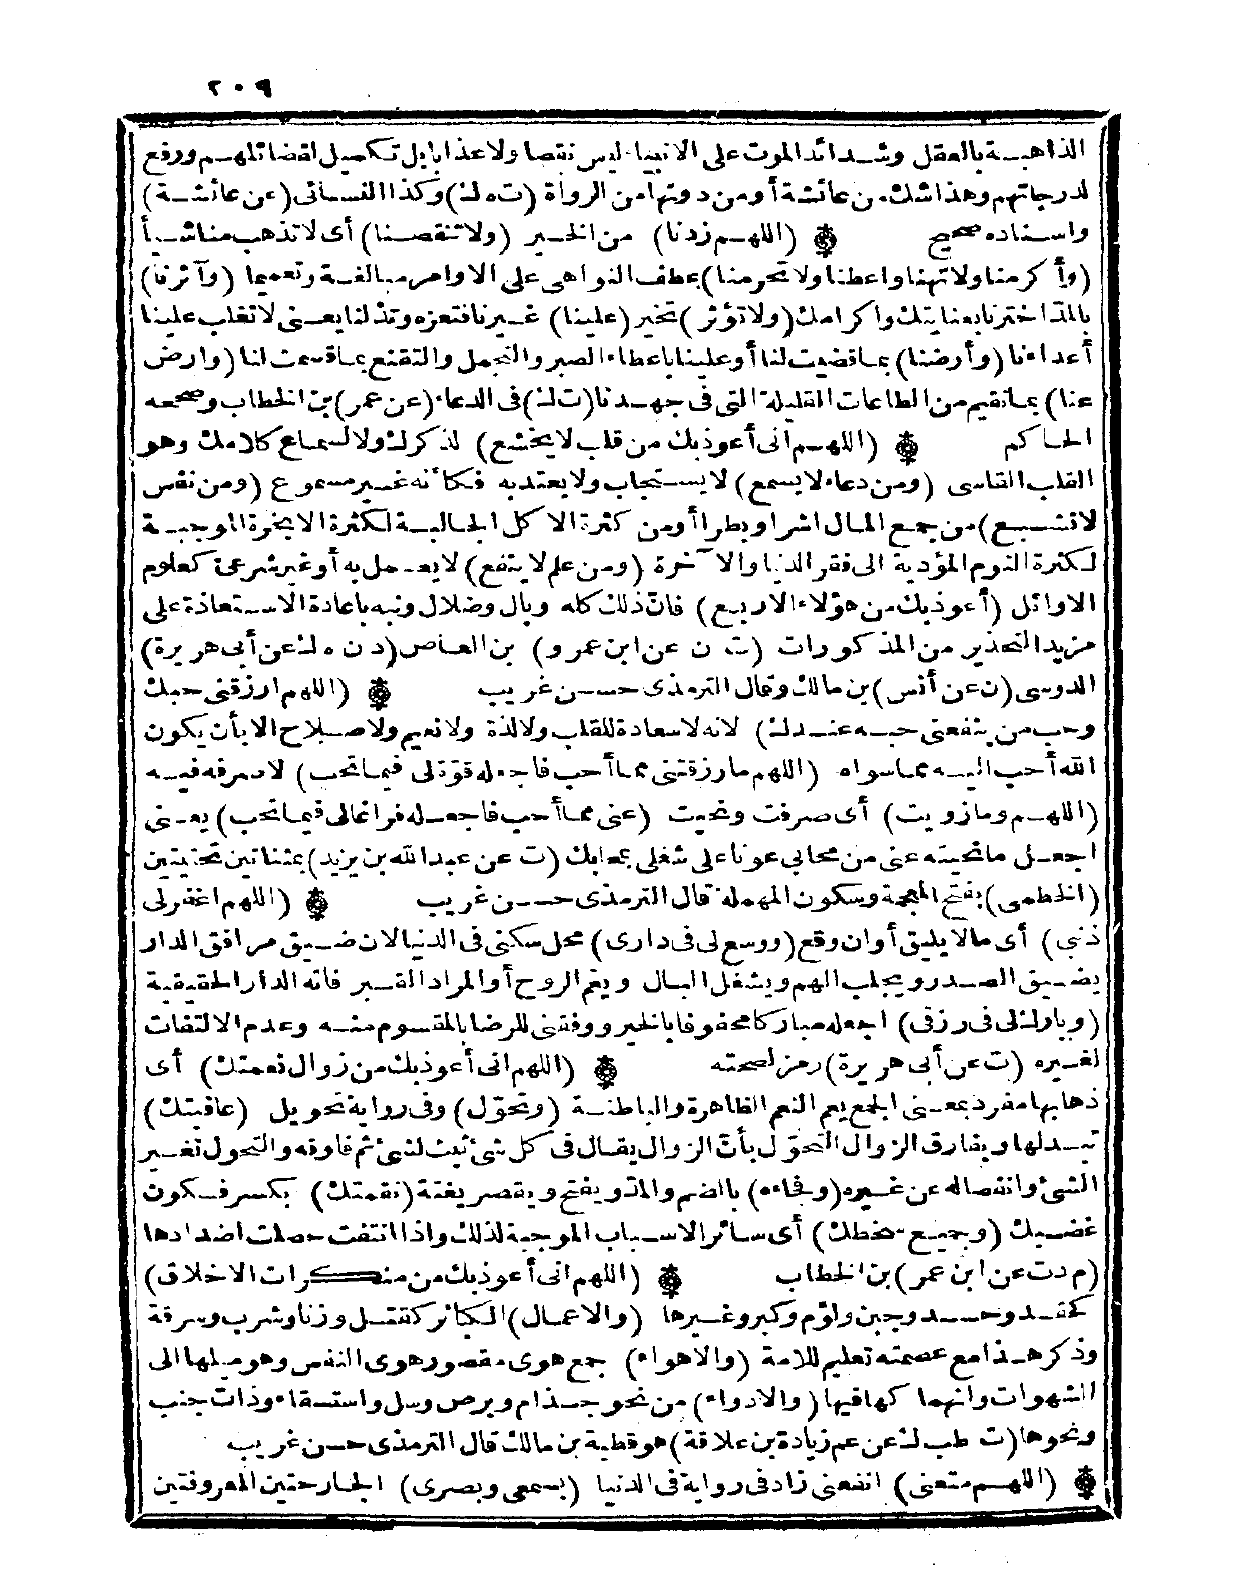 ٢٠٩
الذاهبة بالعقل وشدائد الموت على الانبياء ليس نقصا ولا عذابا بل تكميل لفضائلهم ورفع
لدرجاتهم وهذا شك من عائشة أو من دونها من الرواة (ت ه ك) وكذا النسائى (عن عائشة)
واسناده صحيح (اللهم زدنا) من الخير (ولا تنقصنا) أى لا تذهب منا شيأ
(وأكرمنا ولا تهنا واعطنا ولا تحرمنا) عطف النواهى على الاوامر مبالغة وتعميما (وآثرنا)
بالمد اخترنا بعنايتك واكرامك (ولا تؤثر) تختر (علينا) غيرنا فتعزه وتذلنا يعنى لا تغلب علينا
أعداءنا (وأرضنا) بما قضيت لنا أو علينا باعطاء الصبر والتجمل والتقنع بما قسمت لنا (وارض
عنا) بما نقيم من الطاعات القليلة التى فى جهدنا (ت ك) فى الدعاء (عن عمر) بن الخطاب وصححه
الحاكم (اللهم انى أعوذ بك من قلب لا يخشع) لذكرك ولا لسماع كلامك وهو
القلب القاسى (ومن دعاء لا يسمع) لا يستجاب ولا يعتد به فكأنه غير مسموع (ومن نفس
لا تشبع) من جمع المال اشرا وبطرا أو من كثرة الاكل الجالبة لكثرة الابخرة الموجبة
لكثرة النوم المؤدية الى فقر الدنيا والآخرة (ومن علم لا ينفع) لا يعمل به أو غير شرعى كعلوم
الاوائل (أعوذ بك من هؤلاء الاربع) فان ذلك كله وبال وضلال ونبه باعادة الاستعاذة على
مزيد التحذير من المذكورات (ت ن عن ابن عمرو) بن العاص (د ن ه ك عن أبى هريرة)
الدوسى (ن عن أنس) بن مالك وقال الترمذى حسن غريب (اللهم ارزقنى حبك
وحب من ينفعنى حبه عندك) لانه لا سعادة للقلب ولا لذة ولا نعيم ولا صلاح الا بأن يكون
الله أحب اليه مما سواه (اللهم ما رزقتنى مما أحب فاجعله قوة لى فيما تحب) لا صرفه فيه
(اللهم وما زويت) أى صرفت ونحيت (عنى مما أحب فاجعله فراغا لى فيما تحب) يعنى
اجعل ما نحيته عنى من محابى عونا على شغلى بمحابك (ت عن عبد الله بن يزيد) بمثناتين تحتيتين
(الخطمى) بفتح المعجمة وسكون المهملة قال الترمذى حسن غريب (اللهم اغفر لى
ذنبى) أى ما لا يليق أو ان وقع (ووسع لى فى دارى) محل سكنى فى الدنيا لان ضيق مرافق الدار
يضيق الصدر ويجلب الهم ويشغل البال ويغم الروح أو المراد القبر فانه الدار الحقيقية
(وبارك لى فى رزقى) اجعله مباركا محفوفا بالخير ووفقنى للرضا بالمقسوم منه وعدم الالتفات
لغيره (ت عن أبى هريرة) رمز لصحته (اللهم انى أعوذ بك من زوال نعمتك) أى
ذهابها مفرد بمعنى الجمع يعم النعم الظاهرة والباطنة (وتحول) وفى رواية تحويل (عافيتك)
تبدلها ويفارق الزوال التحول بأن الزوال يقال فى كل شئ ثبت لشئ ثم فارقه والتحول تغير
الشئ وانفصاله عن غيره (وفجاءة) بالضم والمد ويفتح ويقصر بغتة (نقمتك) بكسر فسكون
غضبك (وجميع سخطك) أى سائر الاسباب الموجبة لذلك واذا انتفت حصلت اضدادها
(م د ت عن ابن عمر) بن الخطاب (اللهم انى أعوذ بك من منكرات الاخلاق)
كحقد وحسد وجبن ولؤم وكبر وغيرها (والاعمال) الكبائر كقتل وزنا وشرب وسرقة
وذكر هذا مع عصمته تعليم للامة (والاهواء) جمع هوى مقصور هوى النفس وهو ميلها الى
الشهوات وانهماكها فيها (والادواء) من نحو جذام وبرص وسل واستسقاء وذات جنب
ونحوها (ت طب ك عن عم زيادة بن علاقة) هو قطبة بن مالك قال الترمذى حسن غريب
(اللهم متعنى) انفعنى زاد فى رواية فى الدنيا (بسمعى وبصرى) الجارحتين المعروفتين